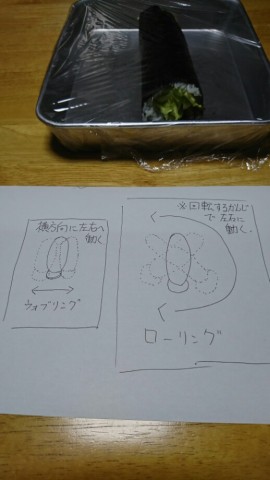 横方向に左右へ
動く
ウォブリング
※回転するかんじ
で左右に
動く。
ローリング